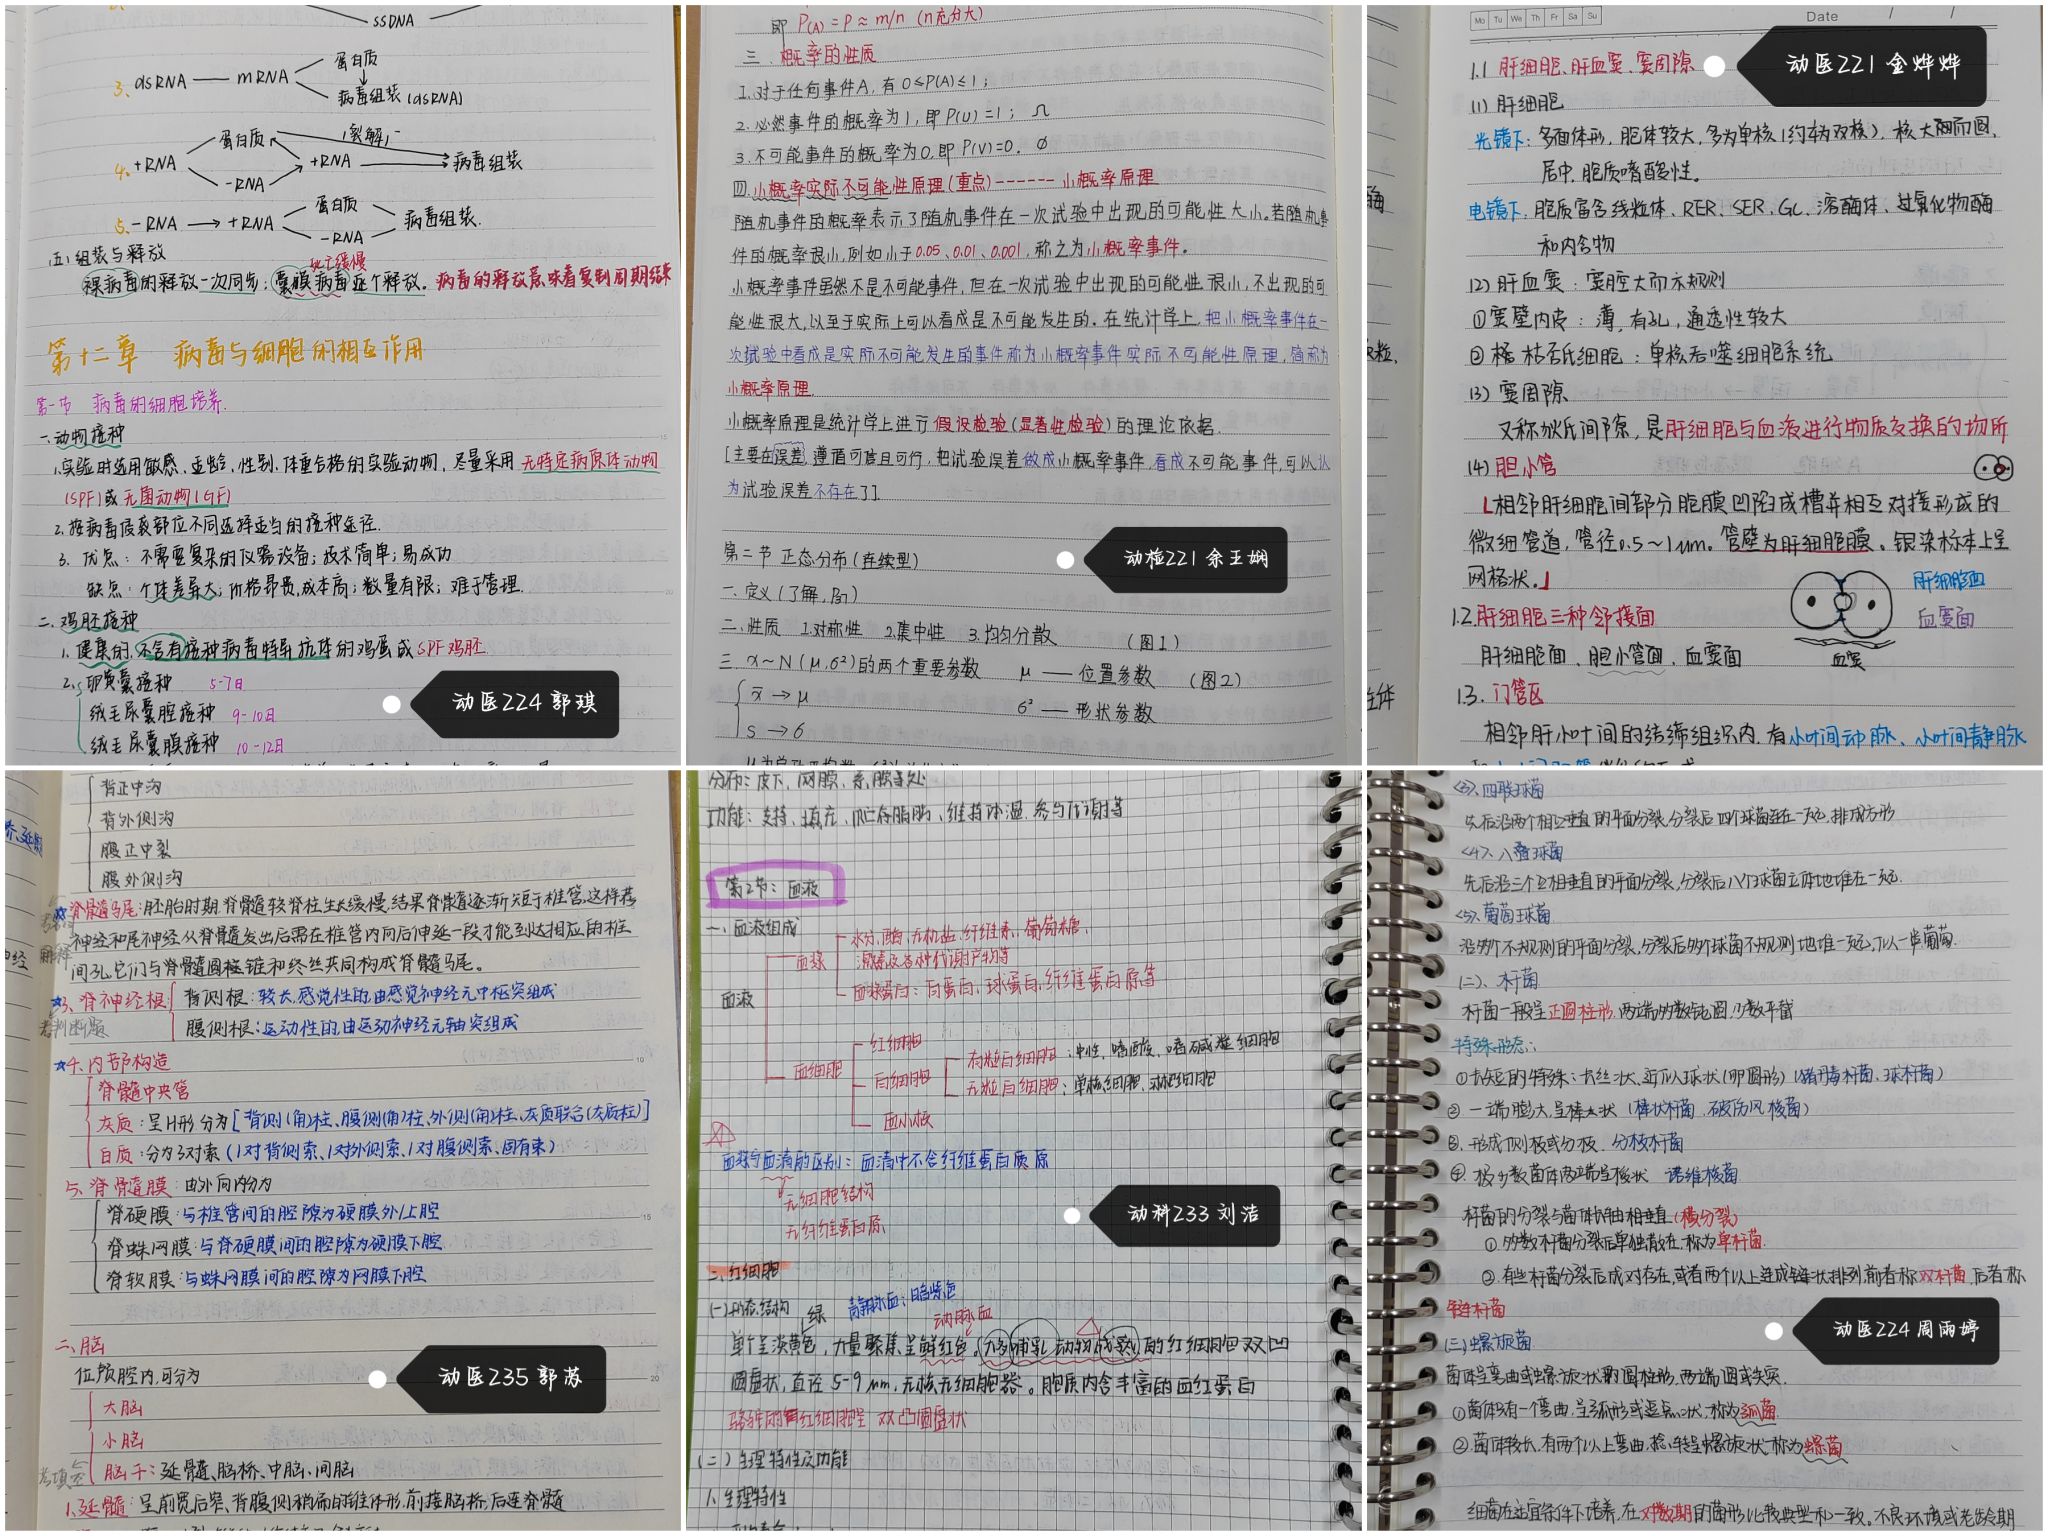 ssDNA
3. dsRNA — mRNA
蛋白质
病毒组装(dsRNA)
4. +RNA
蛋白质
(裂解)
+RNA
病毒组装
-RNA
5. -RNA → +RNA
蛋白质
病毒组装.
-RNA
(五)组装与释放
死亡缓慢
裸病毒的释放一次同步;囊膜病毒逐个释放。病毒的释放意味着复制周期结束
第十二章 病毒与细胞的相互作用
第一节 病毒的细胞培养.
一.动物接种
1.实验时选用敏感、适龄、性别、体重合格的实验动物,尽量采用无特定病原体动物
(SPF)或无菌动物(GF)
2.按病毒侵袭部位不同选择适当的接种途径.
3. 优点: 不需要复杂的仪器设备;技术简单;易成功
缺点: 个体差异大;价格昂贵,成本高;数量有限;难于管理.
二.鸡胚接种
1.健康的,不含有接种病毒特异抗体的鸡蛋或SPF鸡胚
2.卵黄囊接种 5-7日
绒毛尿囊腔接种 9-10日
绒毛尿囊膜接种 10-12日
动医224 郭琪
即 P(A)=p≈m/n (n充分大)
三.概率的性质
1.对于任何事件A,有0≤P(A)≤1;
2.必然事件的概率为1,即P(U)=1; Ω
3.不可能事件的概率为0,即P(V)=0. ∅
四.小概率实际不可能性原理(重点)------小概率原理
随机事件的概率表示了随机事件在一次试验中出现的可能性大小。若随机事
件的概率很小,例如小于0.05、0.01、0.001,称之为小概率事件。
小概率事件虽然不是不可能事件,但在一次试验中出现的可能性很小,不出现的可
能性很大,以至于实际上可以看成是不可能发生的.在统计学上,把小概率事件在一
次试验中看成是实际不可能发生的事件称为小概率事件实际不可能性原理,简称为
小概率原理.
小概率原理是统计学上进行假设检验(显著性检验)的理论依据.
[主要在误差,遵循可甚且可行,把试验误差做成小概率事件,看成不可能事件,可以认
为试验误差不存在了].
第二节 正态分布(连续型)
动检221 余王娴
一.定义(了解,)
二.性质 1.对称性 2.集中性 3.均匀分散 (图1)
三 x~N(μ,σ²)的两个重要参数 μ——位置参数 (图2)
x̄→μ σ²——形状参数
S→σ
Mo Tu We Th Fr Sa Su
Date / /
1.1 肝细胞、肝血窦、窦周隙
动医221 金烨烨
(1) 肝细胞
光镜下:多面体形,胞体较大,多为单核(约为双核),核大而圆,
居中,胞质嗜酸性。
电镜下.胞质富含线粒体、RER、SER、GC、溶酶体、过氧化物酶
和内含物
(2)肝血窦:窦腔大而不规则
①窦壁内皮:薄,有孔,通透性较大
②枯否氏细胞:单核吞噬细胞系统
(3)窦周隙
又称狄氏间隙,是肝细胞与血液进行物质交换的场所
(4)胆小管
L相邻肝细胞间部分胞膜凹陷成槽并相互对接形成的
微细管道,管径0.5~1μm。管壁为肝细胞膜。银染标本上呈
网格状.」
肝细胞面
血窦面
血窦
1.2.肝细胞三种邻接面
肝细胞面、胆小管面、血窦面
1.3.门管区
相邻肝小叶间的结缔组织内,有小叶间动脉、小叶间静脉
背正中沟
背外侧沟
腹正中裂
腹外侧沟
☆脊髓马尾:胚胎时期,脊髓较脊柱生长缓慢,结果脊髓逐渐短于椎管,这样荐
神经和尾神经从脊髓发出后需在椎管内向后伸延一段才能到达相应的椎
间孔,它们与脊髓圆锥和终丝共同构成脊髓马尾。
☆3.脊神经根
背侧根:较大,感觉性的,由感觉神经元中枢突组成
考判断题
腹侧根:运动性的,由运动神经元轴突组成
☆4.内部构造
脊髓中央管
灰质:呈H形 分为[背侧(角)柱、腹侧(角)柱、外侧(角)柱、灰质联合(灰质柱)]
白质:分为3对索(1对背侧索、1对外侧索、1对腹侧索、固有束)
5.脊髓膜:由外向内分为
脊硬膜:与椎管间的腔隙为硬膜外(上)腔
脊蛛网膜:与脊硬膜间的腔隙为硬膜下腔
脊软膜:与蛛网膜间的腔隙为网膜下腔
二.脑
位颅腔内,可分为
动医235 郭苏
大脑
小脑
考填空
脑干:延髓、脑桥、中脑、间脑
1.延髓:呈前宽后窄、背腹侧稍扁的锥体形,前接脑桥,后连脊髓
分布:皮下、网膜、系膜等处
功能:支持、填充、贮存脂肪、维持体温、参与代谢等
第2节:血液
一.血液组成
血液
血浆
水分、酶、无机盐、纤维素、葡萄糖、
激素及各种代谢产物等
血浆蛋白:白蛋白、球蛋白、纤维蛋白原等
血细胞
红细胞
白细胞
有粒白细胞:中性、嗜酸、嗜碱粒细胞
无粒白细胞:单核细胞、淋巴细胞
血小板
血浆与血清的区别:血清中不含纤维蛋白质原
无细胞结构
无纤维蛋白原
动科233 刘洁
二.红细胞
(一)形态结构 绿 静脉血:暗紫色
动脉血
单个呈淡黄色,大量聚集呈鲜红色。大多哺乳动物成熟的红细胞双凹
圆盘状,直径5-9μm,无核无细胞器。胞质内含丰富的血红蛋白
骆驼的红细胞呈双凸圆盘状
(二)生理特性及功能
1.生理特性
<3>.四联球菌
先后沿两个相互垂直的平面分裂,分裂后四个球菌连在一起,排成方形
<4>.八叠球菌
先后沿三个互相垂直的平面分裂,分裂后八个球菌立体地堆在一起.
<5>.葡萄球菌.
沿多个不规则的平面分裂,分裂后多个球菌不规则地堆一起,似一串葡萄.
(二)、杆菌
杆菌一般呈正圆柱形,两端多数钝圆,少数平截
特殊形态:
①长短的特殊:长丝状、近似球状(卵圆形)(猪丹毒杆菌、球杆菌)
②一端膨大,呈棒状(棒状杆菌,破伤风梭菌)
③.形成侧枝或分枝.分枝杆菌
④.极少数菌体两端呈梭状 诺维梭菌
杆菌的分裂与菌体长轴相垂直(横分裂)
①多数杆菌分裂后单独散在,称为单杆菌.
②.有些杆菌分裂后成对存在,或者两个以上连成链状排列,前者称双杆菌,后者称
链杆菌
(三)螺旋菌
动医224 周雨婷
菌体呈弯曲或螺旋状的圆柱形,两端圆或尖突.
①菌体只有一个弯曲,呈弧形或逗点状,称为弧菌.
②.菌体较长,有两个以上弯曲,捻转呈螺旋状,称为螺菌
细菌在适宜条件下培养,在对数期的菌形比较典型和一致。不良环境或老龄期